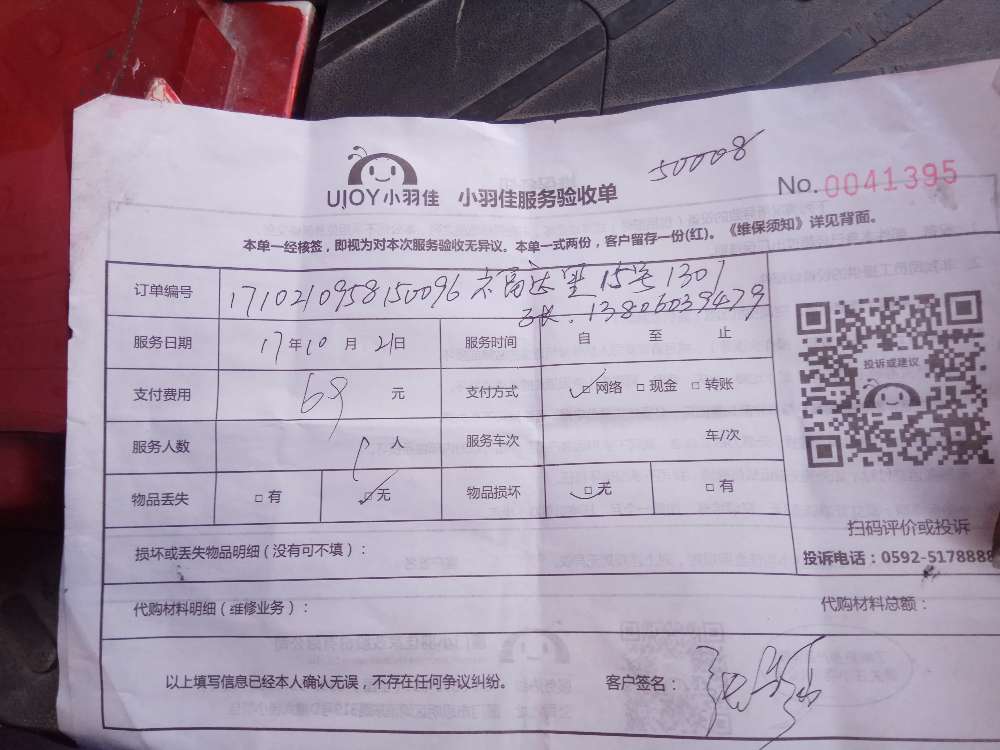 50008
UJOY小羽佳 小羽佳服务验收单 No.0041395
本单一经核签，即视为对本次服务验收无异议。本单一式两份，客户留存一份(红)。《维保须知》详见背面。
订单编号 1710210958150096 富达 15号1301
13806039479
服务日期 17年10月21日 服务时间 自 至 止
支付费用 68元 支付方式 □网络 □现金 □转账
投诉或建议
服务人数 1人 服务车次 车/次
物品丢失 □有 □无 物品损坏 □无 □有
扫码评价或投诉
损坏或丢失物品明细（没有可不填）：
投诉电话：0592-5178888
代购材料明细（维修业务）： 代购材料总额：
以上填写信息已经本人确认无误，不存在任何争议纠纷。 客户签名：